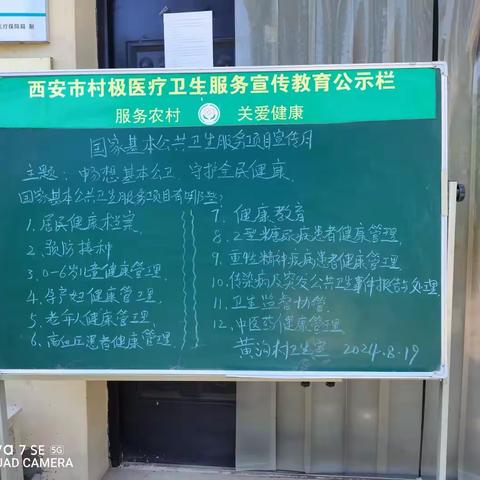 疗保障局 制
西安市村极医疗卫生服务宣传教育公示栏
服务农村 关爱健康
国家基本公共卫生服务项目宣传月
主题：畅想基本公卫、守护全民健康
国家基本公共卫生服务项目有哪些？
1.居民健康档案
2.预防接种
3.0-6岁儿童健康管理
4.孕产妇健康管理
5.老年人健康管理
6.高血压患者健康管理
7.健康教育
8.2型糖尿病患者健康管理
9.重性精神疾病患者健康管理
10.传染病及突发公共卫生事件报告与处理
11.卫生监督协管
12.中医药健康管理
黄沟村卫生室 2024.8.19
7 SE 5G
UAD CAMERA